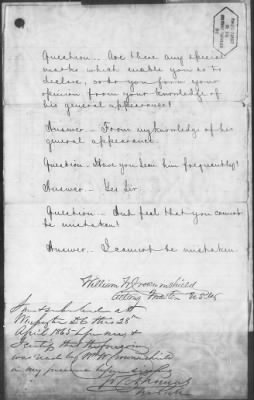 Question.. Are there any special
marks which enable you so to
declare, or do you form your
opinion from your knowledge of
his general appearance?
Answer.- From my knowledge of his
general appearance.
Question- Have you seen him frequently?
Answer.- Yes Sir.
Question- And feel that you cannot
be mistaken?
Answer.- I cannot be mistaken.
William W. Crowninshield
Acting Master U.S.N.
Sworn & subscribed at
Washington D.C. this 28th
April 1865 before me &
I certify that the foregoing
was read by Wm W. Crowninshield
in my presence before